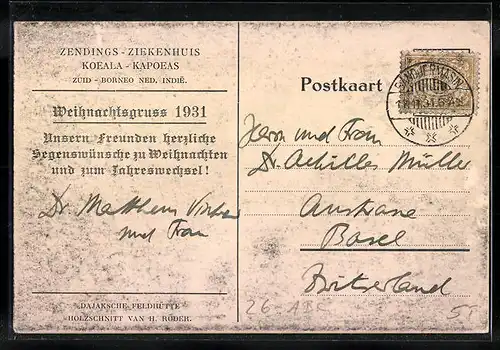 ZENDINGS - ZIEKENHUIS
KOEALA - KAPOEAS
ZUID - BORNEO NED. INDIË.
Weihnachtsgruss 1931
Unsern Freunden herzliche
Segenswünsche zu Weihnachten
und zum Jahreswechsel!
Dr. Mattheus
und Frau
DAJAKSCHE FELDHÜTTE
HOLZSCHNITT VAN H. RÖDER.
Postkaart
BANDJERMASIN
Herrn und Frau
Dr. Achilles Müller
Austrasse
Basel
Switzerland
26
5.-